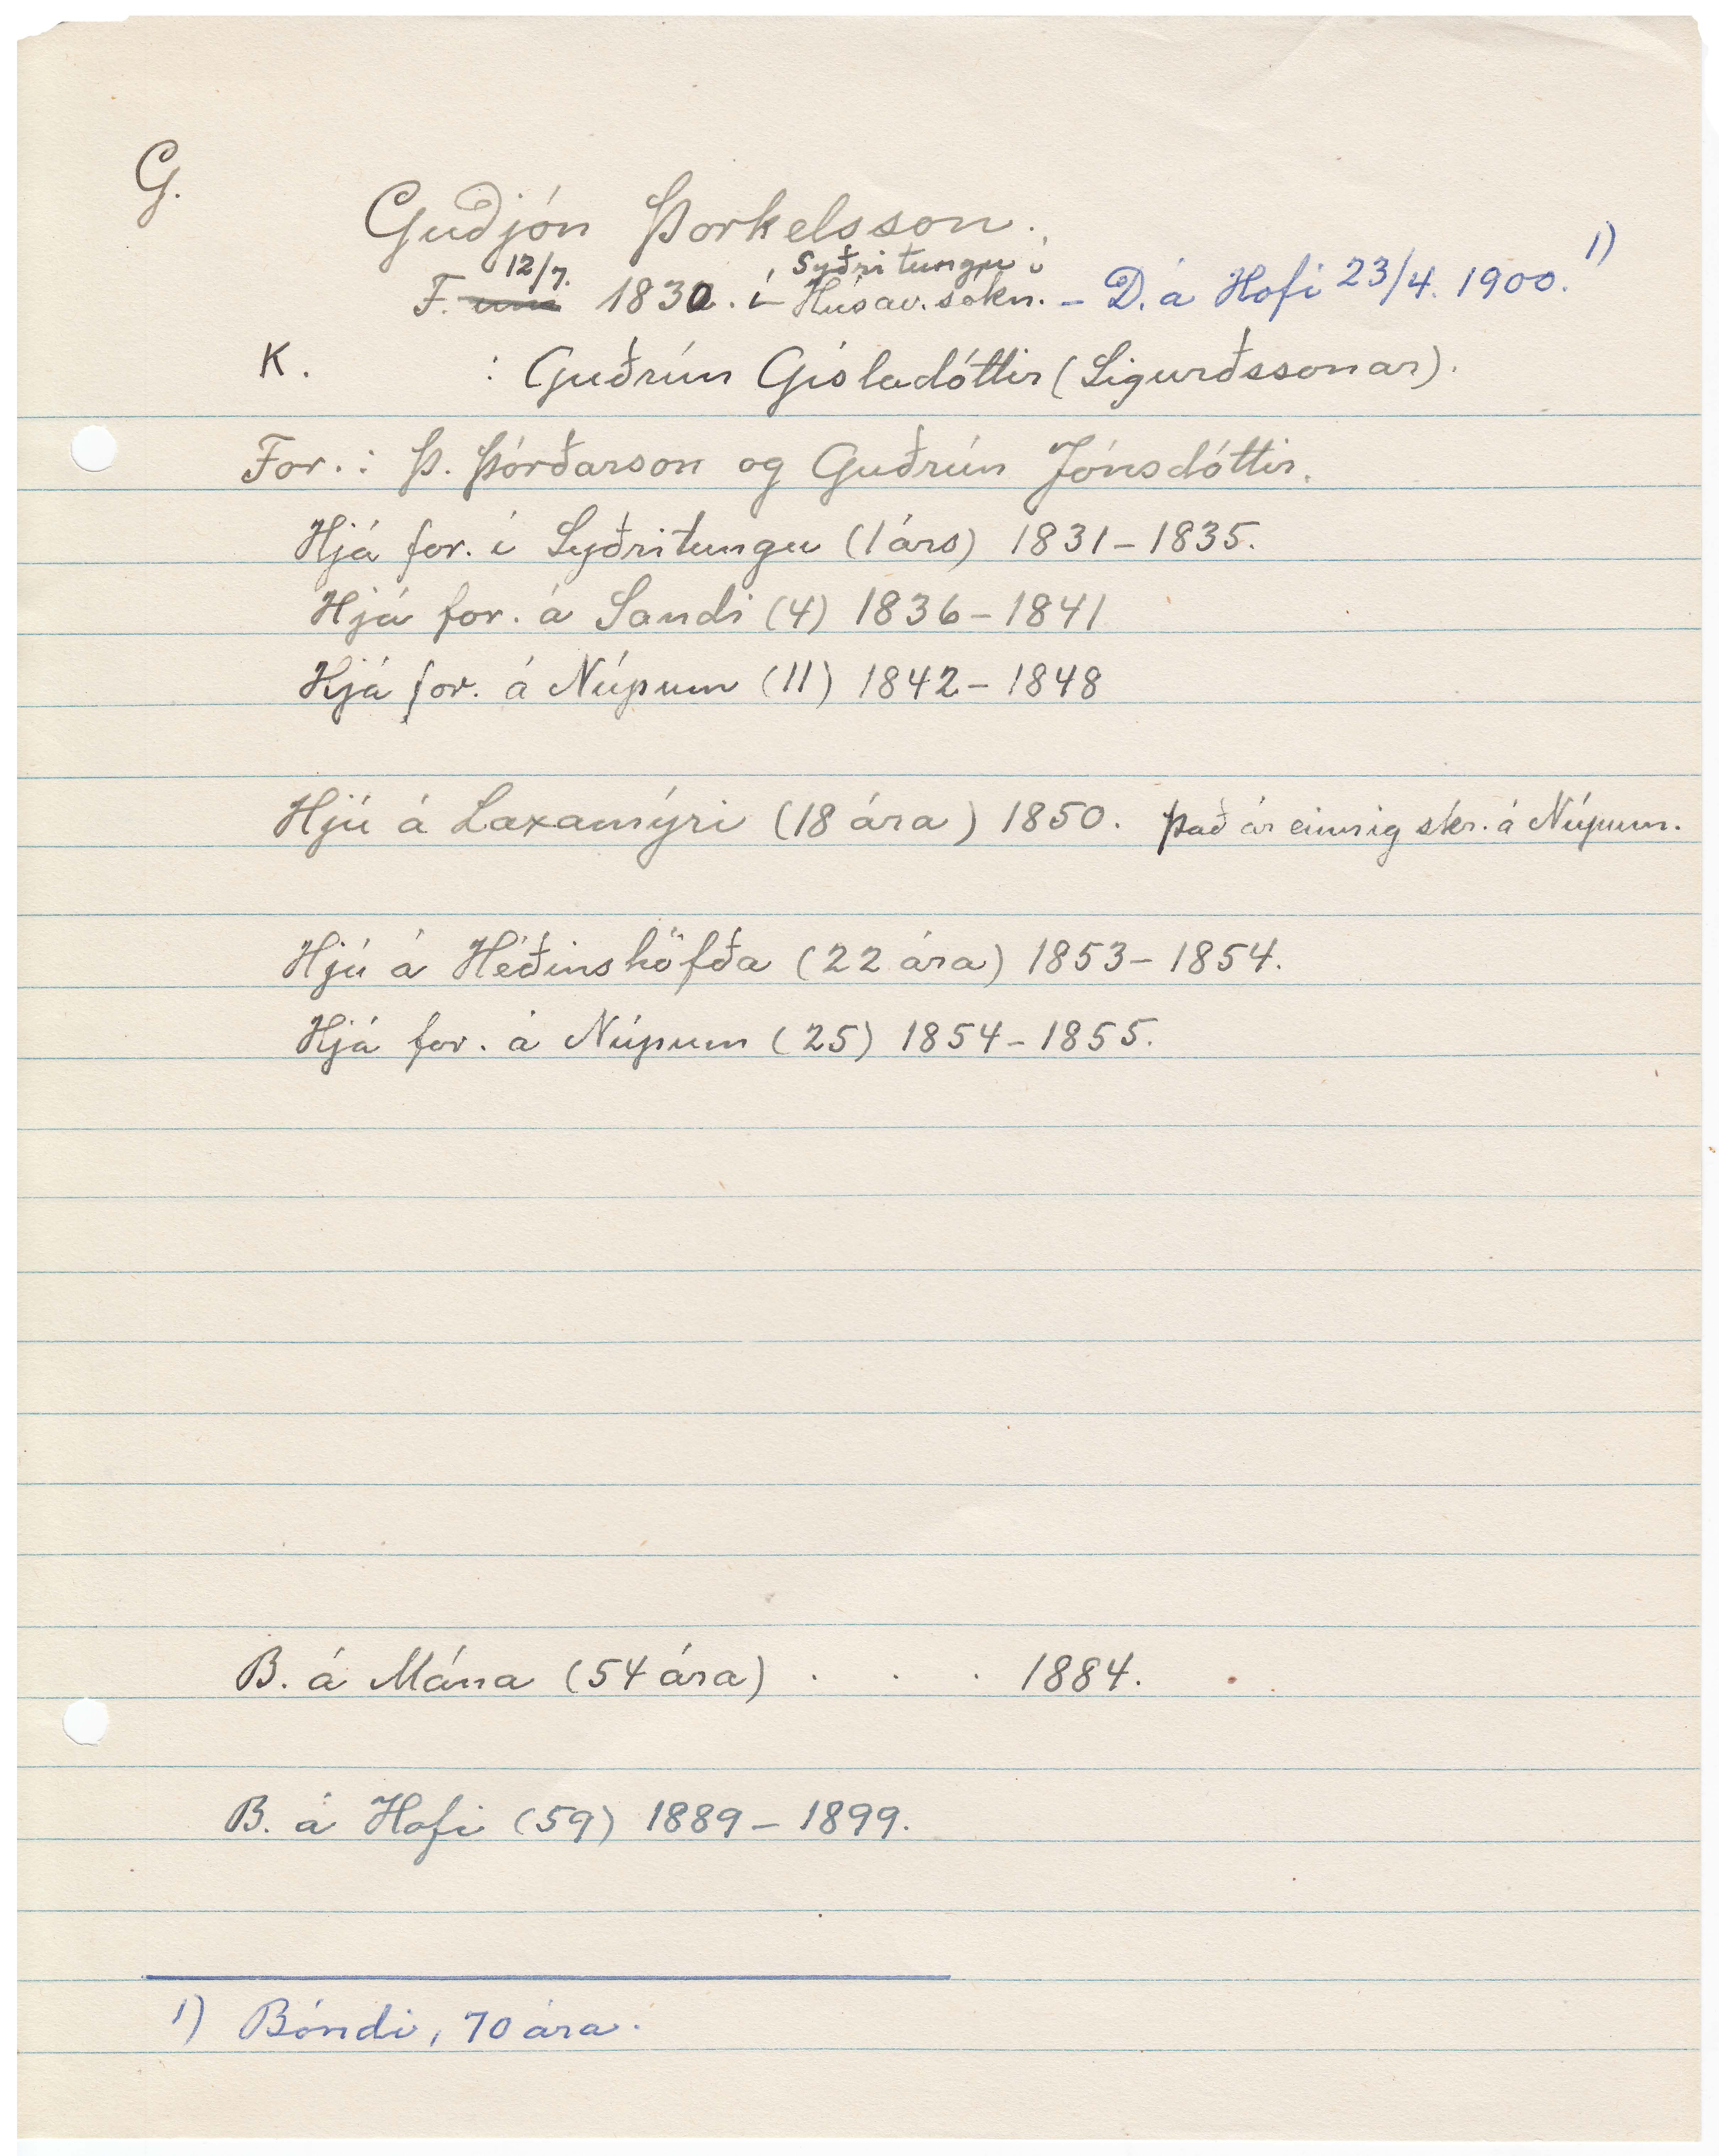 G.
Guðjón Þorkelsson.
F. 12/7. 1830. í Syðritungu í Húsav.sókn. – D. á Hofi 23/4. 1900. 1)
K. : Guðrún Gísladóttir (Sigurðssonar).
For.: Þ. Þórðarson og Guðrún Jónsdóttir.
Hjá for. í Syðritungu (1 árs) 1831–1835.
Hjá for. á Sandi (4) 1836–1841
Hjá for. á Núpum (11) 1842–1848
Hjú á Laxamýri (18 ára) 1850. Það ár einnig skr. á Núpum.
Hjú á Héðinshöfða (22 ára) 1853–1854.
Hjá for. á Núpum (25) 1854–1855.
B. á Mána (54 ára) . . . 1884.
B. á Hofi (59) 1889–1899.
1) Bóndi, 70 ára.